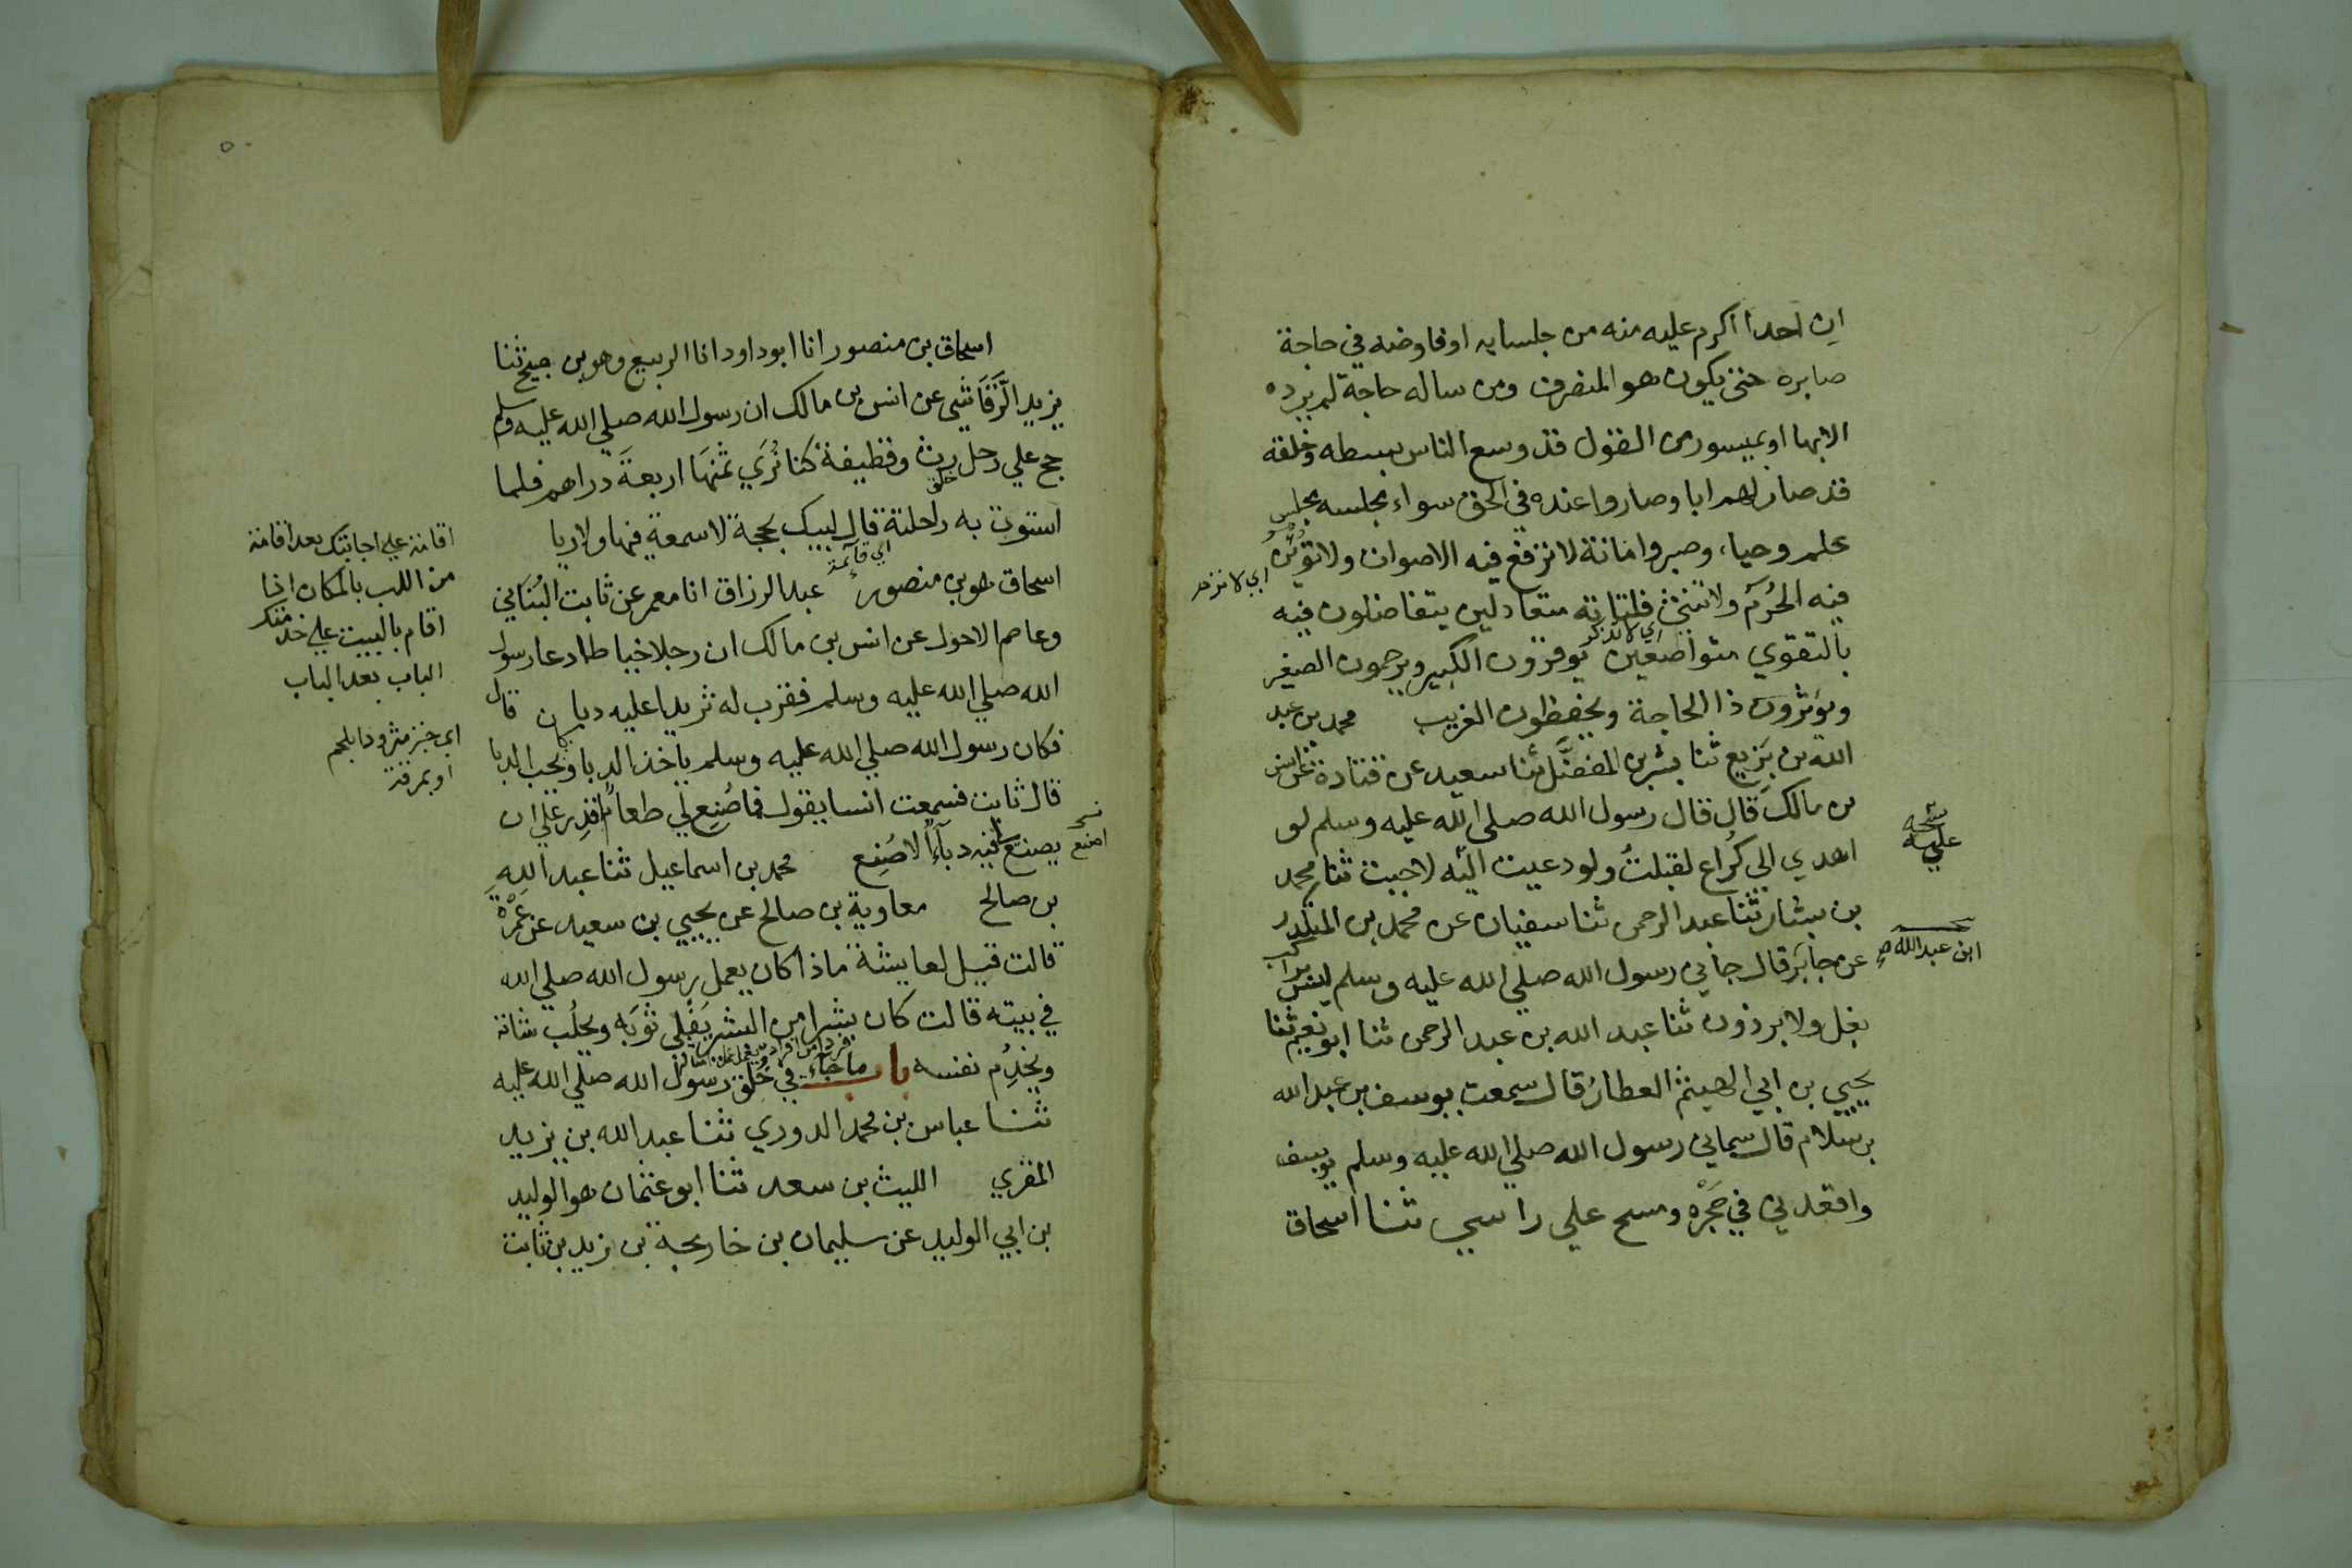 ان احدا اكرم عليه منه من جلسايه او فاوضه في حاجة
صابره حتى يكون هو المنصرف ومن ساله حاجة لم يرده
الا بها او بميسور من القول قد وسع الناس بسطه وخلقه
فد صار لهم ابا وصاروا عنده في الحق سواء مجلسه مجلس
علم وحيا، وصبر وامانة لا ترفع فيه الاصوات ولا تؤبن
اي لا تزحر
فيه الحُرَمُ ولا تنثى فلتاته متعادلين يتفاضلون فيه
اي لا تذكر
بالتقوي متواضعين يوقرون الكبير ويرحمون الصغير
ويؤثرون ذا الحاجة ويحفظون الغريب محمد بن عبد
الله بن بَزِيع ثنا بشر بن المفضَّل ثنا سعيد عن قتادة عن انس
بن مالك قال قال رسول الله صلى الله عليه وسلم لو
اهدي الى كُراع لقبلتُ ولو دعيت اليه لاجبت ثنا محمد
نسخه
عليه
بن بشار ثنا عبد الرحمن ثنا سفيان عن محمد بن المنكدر
ابن عبد الله صح
عن جابر قال جاني رسول الله صلي الله عليه وسلم ليس براكب
بغل ولا برذون ثنا عبد الله بن عبد الرحمن ثنا ابو نعيم ثنا
يحيي بن ابي الهيثم العطارُ قال سمعت يوسف بن عبد الله
بن سلام قال سماني رسول الله صلي الله عليه وسلم يوسف
واقعدني في حَجْرِه ومسح علي راسي ثنا اسحاق
اسحاق بن منصور انا ابو داود انا الربيع وهو بن صبيح ثنا
يزيد الرَّقَاشي عن انس بن مالك ان رسول الله صلي الله عليه وسلم
حج علي رحل رث وقطيفة كنا نُرَي ثمنَهَا اربعةَ دراهم فلما
خلق
استوت به راحلته قال لبيك بحجة لا سمعة فيها ولا ريا
اي قائمة
اسحاق هو بن منصور عبد الرزاق انا معمر عن ثابت البُنَاني
وعاصم الاحول عن انس بن مالك ان رجلا خياطا دعا رسول
الله صلي الله عليه وسلم فقرب له ثريدا عليه دبا قال
فكان رسول الله صلي الله عليه وسلم ياخذ الدبا وكان يحب الدبا
قال ثابت فسمعت انسا يقول فما صُنِع لي طعامٌ اقدِر علي ان
يصنع فيه دبآءٌ الا صُنِع محمد بن اسماعيل ثنا عبد اللهِ
اصنع
بن صالح معاوية بن صالح عن يحيي بن سعيد عن عَمْرَةَ
قالت قيل لعايشة ماذا كان يعمل رسول الله صلي الله
في بيته قالت كان بشرا من البشر يَفْلِي ثوبَه ويحلُب شاته
ويخدِم نفسه باب ما جاء في خُلُق رسول الله صلي الله عليه
ثنا عباس بن محمد الدوري ثنا عبد الله بن يزيد
المقري الليث بن سعد ثنا ابو عثمان هو الوليد
بن ابي الوليد عن سليمان بن خارجة بن زيد بن ثابت
اقامة علي اجابتك بعد اقامة
من اللب بالمكان اذا
اقام بالبيت علي خدمتك
الباب بعد الباب
اي خبز مثرودا بلحم
او بمرقة